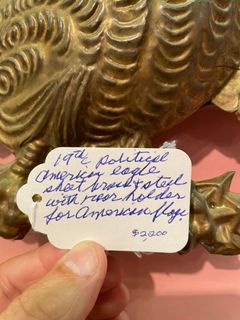 19th c political
American eagle
sheet brass & steel
with rear holder
for American flag.
$2,200